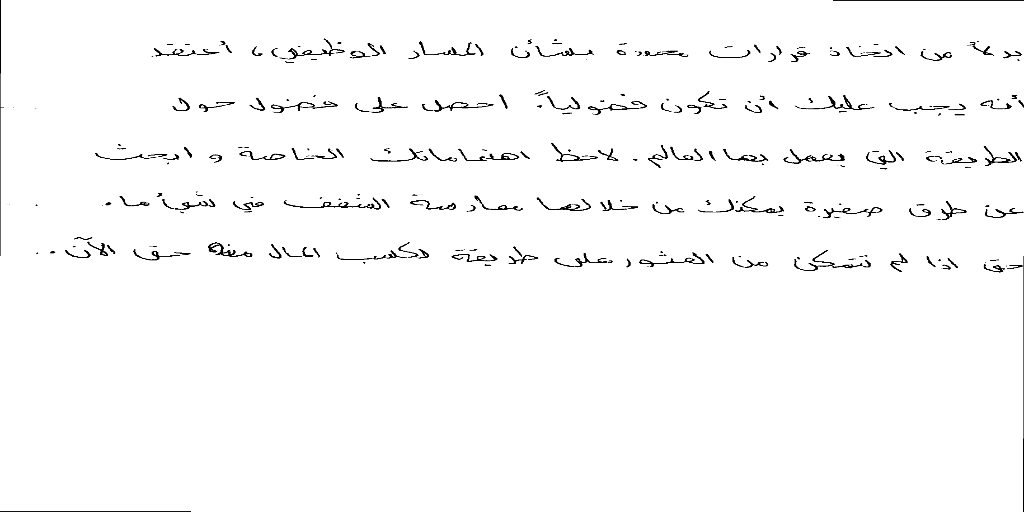 بدلاً من اتخاذ قرارات محددة بشأن المسار الوظيفي، أعتقد
أنه يجب عليك أن تكون فضولياً. احصل على فضول حول
الطريقة التي يعمل بها العالم. لاحظ اهتماماتك الخاصة و ابحث
عن طرق صغيرة يمكنك من خلالها ممارسة الشغف في شيأ ما.
حتى اذا لم تتمكن من العثور على طريقة لكسب المال منه حتى الآن.